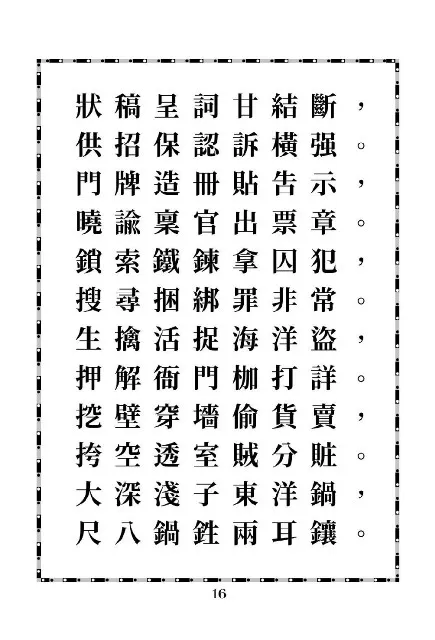 狀稿呈詞甘結斷，
供招保認訴橫强。
門牌造冊貼告示，
曉諭稟官出票章。
鎖索鐵鍊拿囚犯，
搜尋捆綁罪非常。
生擒活捉海洋盜，
押解衙門枷打詳。
挖壁穿墻偷貨賣，
挎空透室賊分賍。
大深淺子東洋鍋，
尺八鍋鉎兩耳鑲。
16